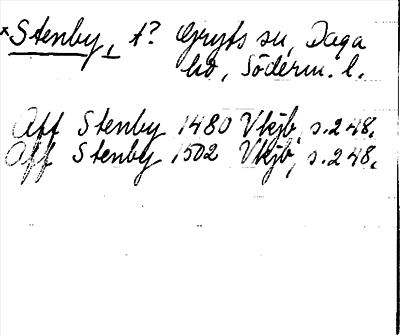 *Stenby, t? Gryts sn, Daga
hd, Söderm. l.
Aff Stenby 1480 Vkjb, s. 248.
Aff Stenby 1502 Vkjb, s. 248.